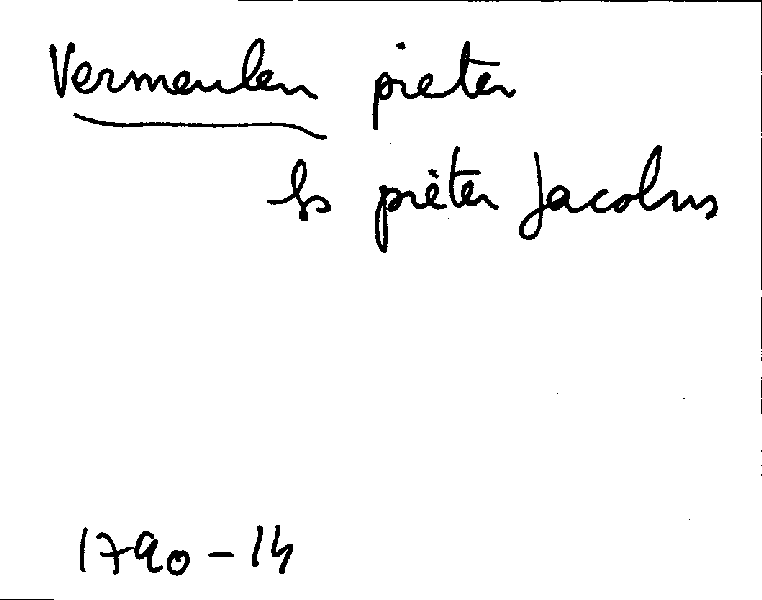 Vermeulen pieter
fs pieter Jacobus
1790-14